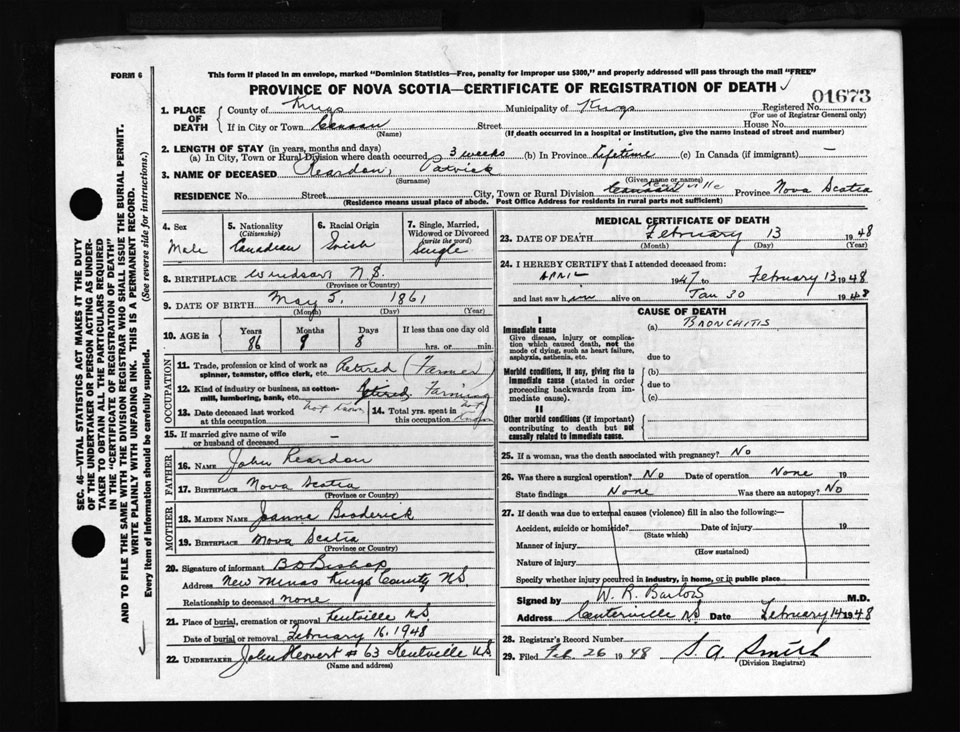 FORM 6
This form if placed in an envelope, marked "Dominion Statistics—Free, penalty for improper use $300," and properly addressed will pass through the mail "FREE"
PROVINCE OF NOVA SCOTIA—CERTIFICATE OF REGISTRATION OF DEATH
01673
1. PLACE OF DEATH
County of Kings Municipality of Kings Registered No.
(For use of Registrar General only)
If in City or Town Street House No.
(Name) (If death occurred in a hospital or institution, give the name instead of street and number)
2. LENGTH OF STAY (in years, months and days)
(a) In City, Town or Rural Division where death occurred 3 weeks (b) In Province Lifetime (c) In Canada (if immigrant) —
3. NAME OF DECEASED Reardon, Patrick
(Surname) (Given name or names)
RESIDENCE No. Street City, Town or Rural Division Province Nova Scotia
(Residence means usual place of abode. Post Office Address for residents in rural parts not sufficient)
4. Sex Male
5. Nationality (Citizenship) Canadian
6. Racial Origin Irish
7. Single, Married, Widowed or Divorced (write the word) Single
8. BIRTHPLACE Windsor N S.
(Province or Country)
9. DATE OF BIRTH May 5, 1861
(Month) (Day) (Year)
10. AGE in Years 86 Months 9 Days 8 If less than one day old hrs. or min.
OCCUPATION
11. Trade, profession or kind of work as spinner, teamster, office clerk, etc. Retired (Farmer)
12. Kind of industry or business, as cotton-mill, lumbering, bank, etc. Retired Farming
13. Date deceased last worked at this occupation not known
14. Total yrs. spent in this occupation not known
15. If married give name of wife or husband of deceased —
FATHER
16. NAME John Reardon
17. BIRTHPLACE Nova Scotia
(Province or Country)
MOTHER
18. MAIDEN NAME Joanna Broderick
19. BIRTHPLACE Nova Scotia
(Province or Country)
20. Signature of informant B O Bishop
Address New Minas Kings County N.S.
Relationship to deceased none
21. Place of burial, cremation or removal Kentville N.S.
Date of burial or removal February 16, 1948
22. UNDERTAKER John # 63 Kentville N.S
(Name and address)
MEDICAL CERTIFICATE OF DEATH
23. DATE OF DEATH February 13 1948
(Month) (Day) (Year)
24. I HEREBY CERTIFY that I attended deceased from:
APRIL 1947 to February 13 1948
and last saw him alive on Jan 30 1948
CAUSE OF DEATH
I
Immediate cause (a) BRONCHITIS
Give disease, injury or complication which caused death, not the mode of dying, such as heart failure, asphyxia, asthenia, etc.
due to
Morbid conditions, if any, giving rise to immediate cause (stated in order proceeding backwards from immediate cause).
(b)
due to
(c)
II
Other morbid conditions (if important) contributing to death but not causally related to immediate cause.
25. If a woman, was the death associated with pregnancy? No
26. Was there a surgical operation? No Date of operation None 19
State findings None Was there an autopsy? No
27. If death was due to external causes (violence) fill in also the following:—
Accident, suicide or homicide? Date of injury 19
(State which)
Manner of injury
(How sustained)
Nature of injury
Specify whether injury occurred in industry, in home, or in public place
Signed by W. R. M.D.
Address Centerville N.S Date February 14 1948
28. Registrar's Record Number
29. Filed Feb. 26 1948 S. A. Smith
(Division Registrar)
SEC. 46—VITAL STATISTICS ACT MAKES IT THE DUTY
OF THE UNDERTAKER OR PERSON ACTING AS UNDER-
TAKER TO OBTAIN ALL THE PARTICULARS REQUIRED
IN THE "CERTIFICATE OF REGISTRATION OF DEATH"
AND TO FILE THE SAME WITH THE DIVISION REGISTRAR WHO SHALL ISSUE THE BURIAL PERMIT.
WRITE PLAINLY WITH UNFADING INK. THIS IS A PERMANENT RECORD.
Every item of information should be carefully supplied. (See reverse side for instructions.)